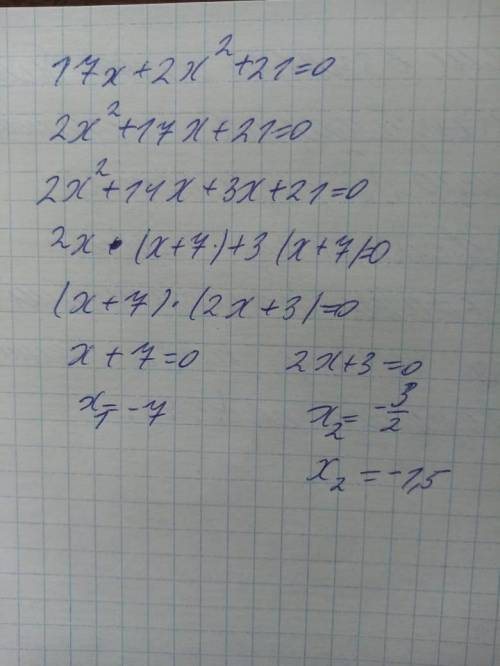 17x+2x²+21=0
2x²+17x+21=0
2x²+14x+3x+21=0
2x·(x+7)+3(x+7)=0
(x+7)·(2x+3)=0
x+7=0 2x+3=0
x₁=-7 x₂=-3/2
x₂=-1,5